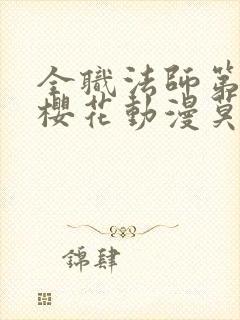 全職法師第
櫻花動漫莫
錦肆